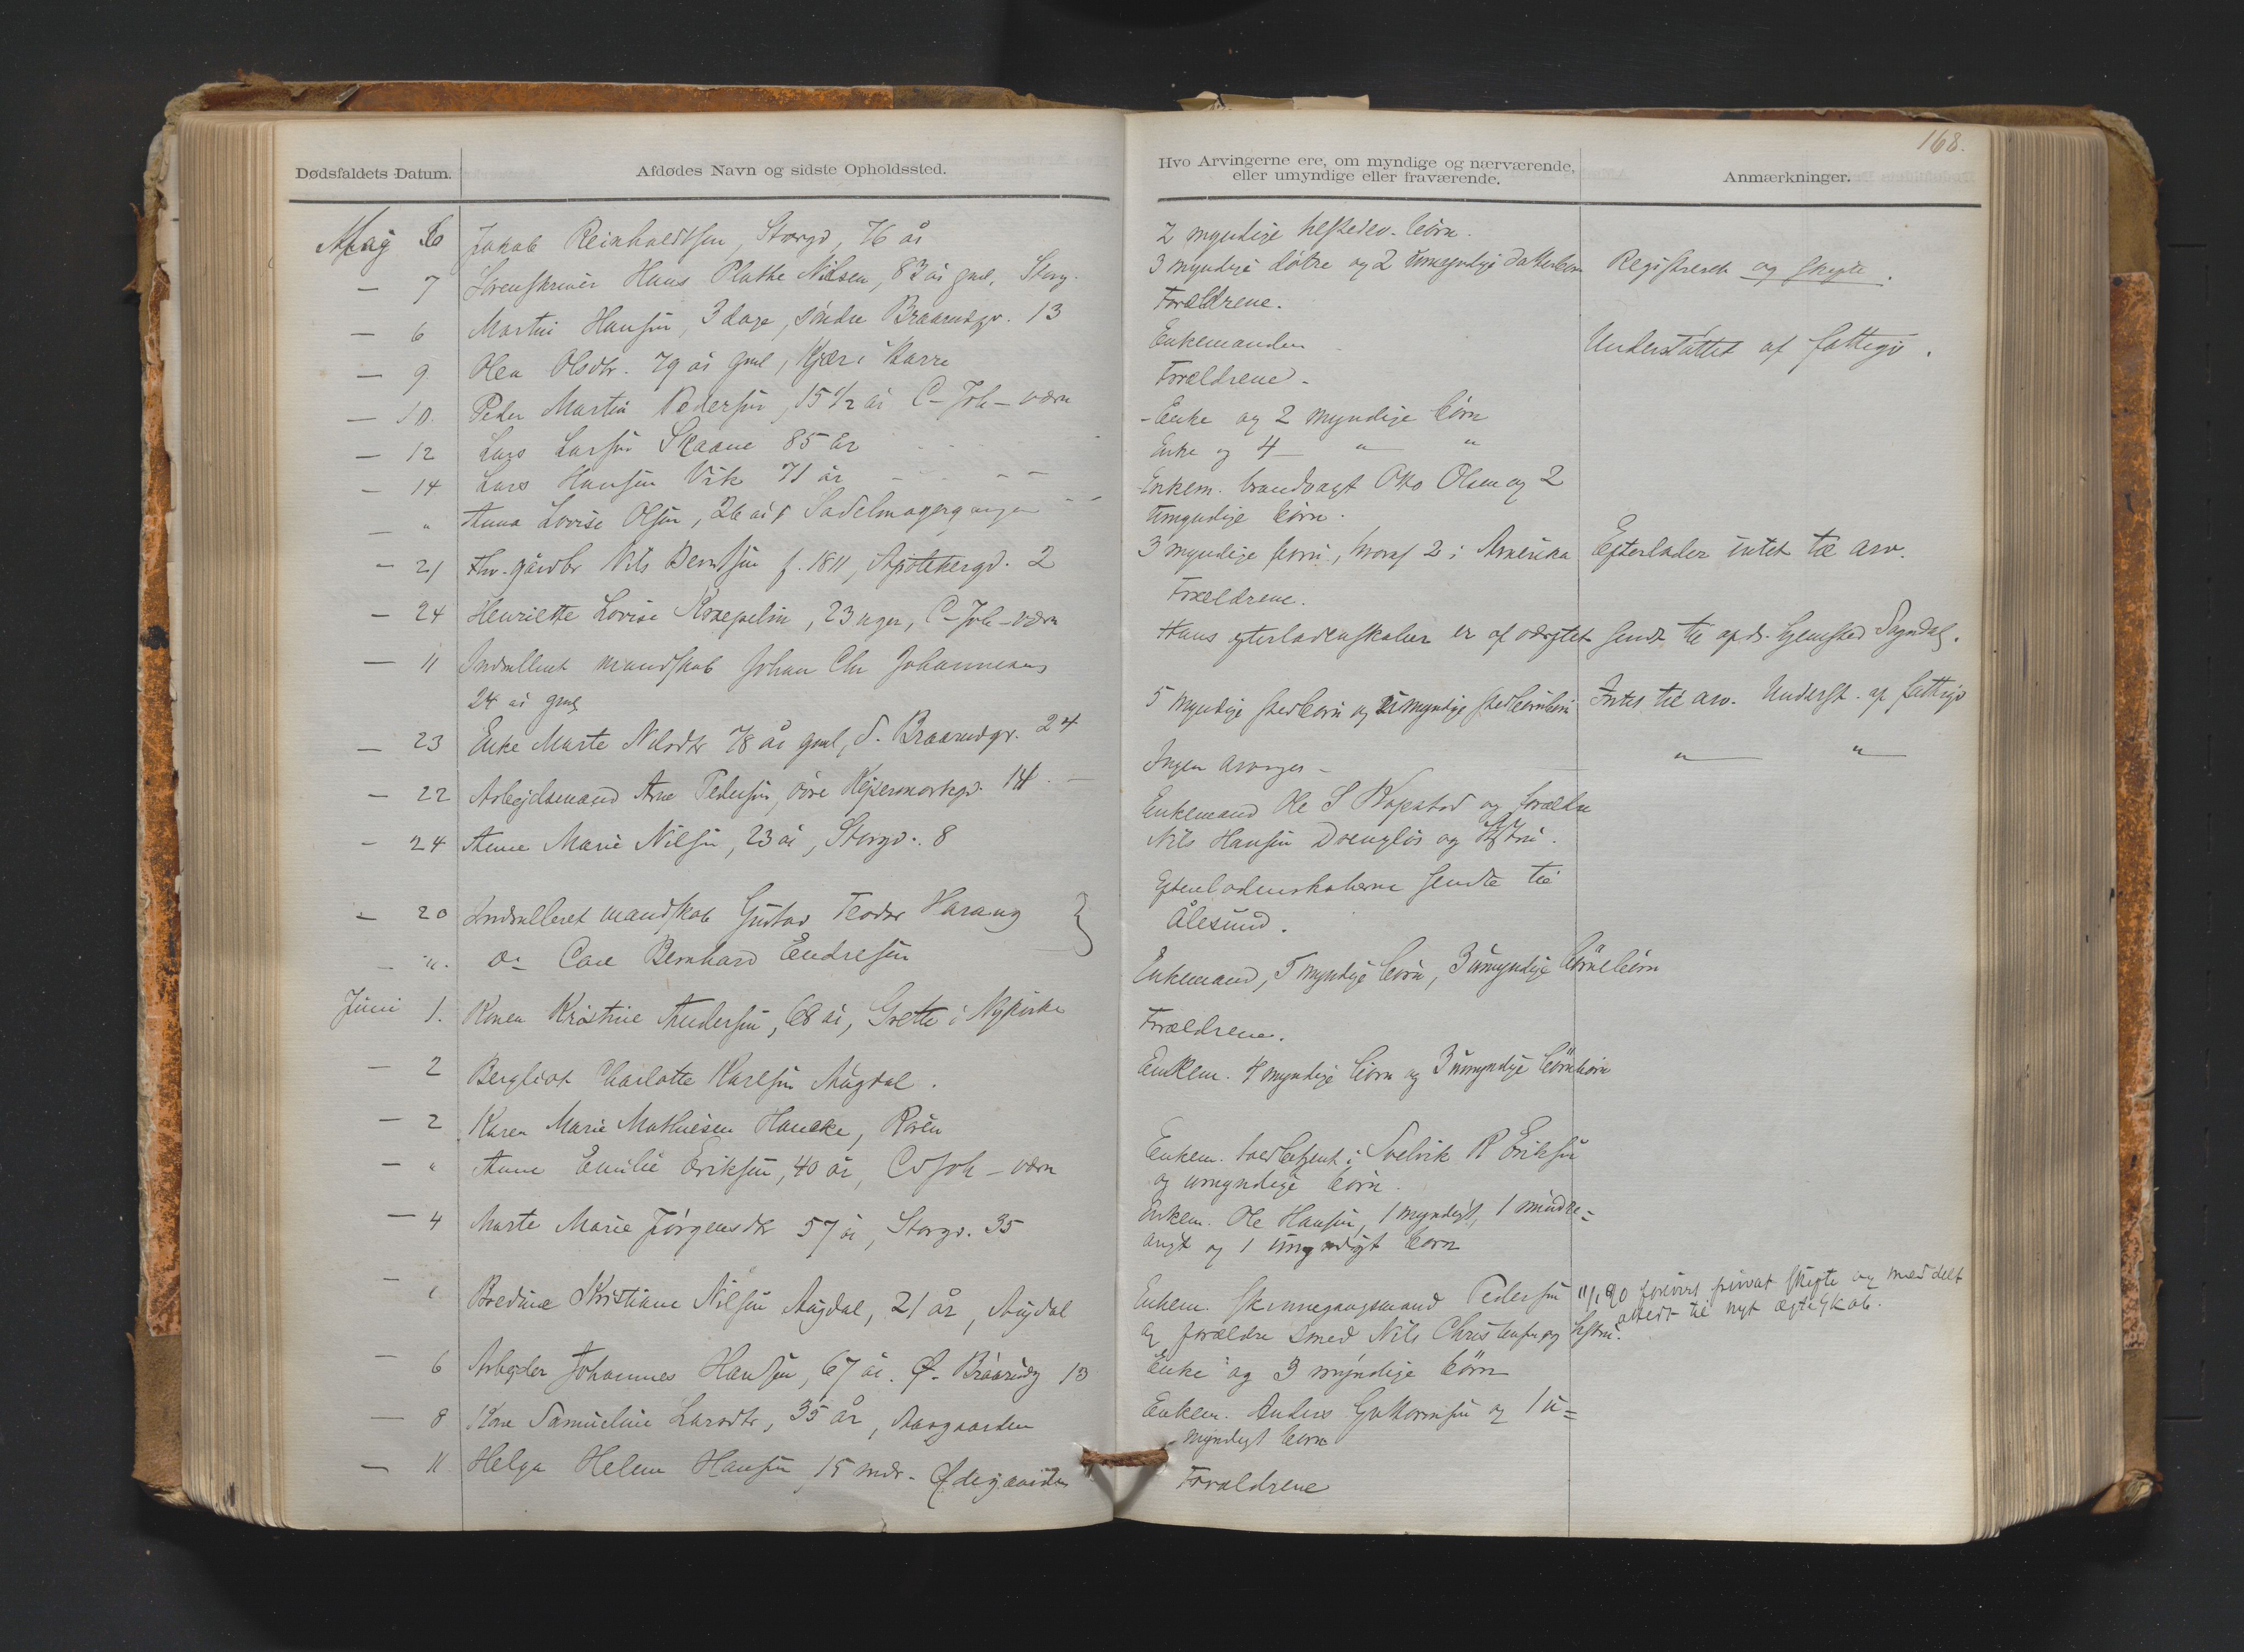 168.
Dødsfaldets Datum.
Afdødes Navn og sidste Opholdssted.
Hvo Arvingerne ere, om myndige og nærværende, eller umyndige eller fraværende.
Anmærkninger.
Maj 6 Jakob Reinholdtsen, Storgd, 76 år
2 myndige helsøsk. børn.
— 7 Hans Plathe Nilsen, 83 år gml, Storg.
3 myndige døtre og 2 umyndige datterbørn
Registreret og skifte.
— 6 Martin Hansen, 3 dage, søndre Braarudgd. 13
Forældrene.
— 9 Olea Olsdtr. 79 år gml, Kjær i Karre
Enkemanden
Understøttet af fattigv.
— 10. Peder Martin Pedersen, 15 1/2 år C-Joh-værn
Forældrene.
— 12 Lars Larsen Skaane 85 år
Enke og 2 myndige børn
— 14 Lars Hansen Vik 71 år
Enke og 4 — " — "
— " Anna Lovise Olsen, 26 år, Sadelmagergangen
Enkem. brandvagt Otto Olsen og 2
umyndige børn.
— 21 Fhv. gårdbr Nils Berntsen f. 1811, Apothekergd. 2
3 myndige børn, hvoraf 2 i Amerika
Efterlader intet til arv.
— 24 Henriette Lovise Kræpelin, 23 uger, C-Joh-værn
Forældrene.
— 11 Indrulleret mandskab Johan Chr Johannesen
24 år gml
Hans efterladenskaber er af værftet sendt til opds. hjemsted Sogndal.
— 23 Enke Marte Nilsdtr 78 år gml, S. Braarudgd. 24
5 myndige stedbørn og umyndige stedbørnbørn
Intet til arv. Underst. af fattigv
— 22 Arbejdsmand Arne Pedersen, øvre Kejsermarkgd. 14
Ingen arvinger —
" — "
— 24 Anne Marie Nilsen, 23 år, Storgd. 8
Enkemand Ole S Kopstad og forældre
Nils Hansen Drengløs og Hustru.
— 20 Indrulleret mandskab Gustav Teodor Harang
Efterladenskaberne sendte til
Ålesund.
— ". do Carl Bernhard Endresen
Juni 1. Konen Kristine Andersen, 68 år, Grette i Nykirke
Enkemand, 5 myndige børn, 3 umyndige børnebørn
— 2 Bergliot Charlotte Karlsen Augdal.
Forældrene.
— 2 Karen Marie Mathiesen Hancke, Røren
Enkem. 4 myndige børn og 3 umyndige børnebørn
— " Anne Emilie Eriksen, 40 år, C-Joh-værn
Enkem. toldbetjent i Svelvik R Eriksen
og umyndige børn.
— 4 Marte Marie Jørgensdtr 57 år, Storgd. 35
Enkem. Ole Hansen, 1 myndigt, 1 mindre=
årigt og 1 umyndigt barn
— Bredine Kristiane Nilsen Augdal, 21 år, Augdal
Enkem. Skinnegangsmand Pedersen
og forældre smed Nils Christensen og hustru.
11/1 90 forevist privat skifte og meddelt
attest til nyt ægteskab.
— 6 Arbejder Johannes Hansen, 67 år. Ø. Braarudg 13
Enke og 3 myndige børn
— 8 Kone Samueline Larsdtr, 35 år, Aasgaarden
Enkem. Anders Guttormsen og 1 u=
myndigt barn
— 11 Helga Helene Hansen 15 mdr. Ødegaarden
Forældrene